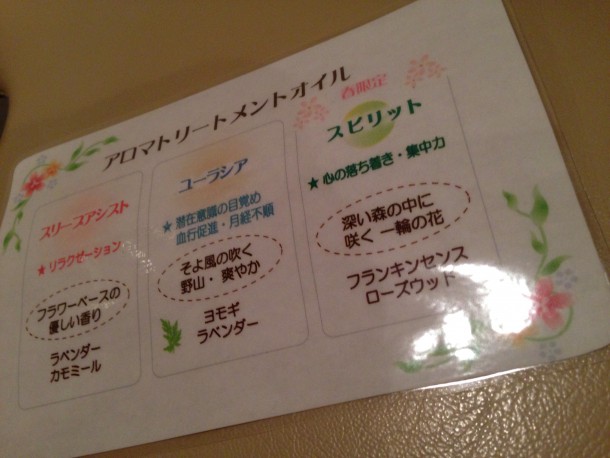 アロマトリートメントオイル
スリーズアシスト
★リラクゼーション
フラワーベースの
優しい香り
ラベンダー
カモミール
ユーラシア
★潜在意識の目覚め
血行促進・月経不順
そよ風の吹く
野山・爽やか
ヨモギ
ラベンダー
春限定
スピリット
★心の落ち着き・集中力
深い森の中に
咲く一輪の花
フランキンセンス
ローズウッド